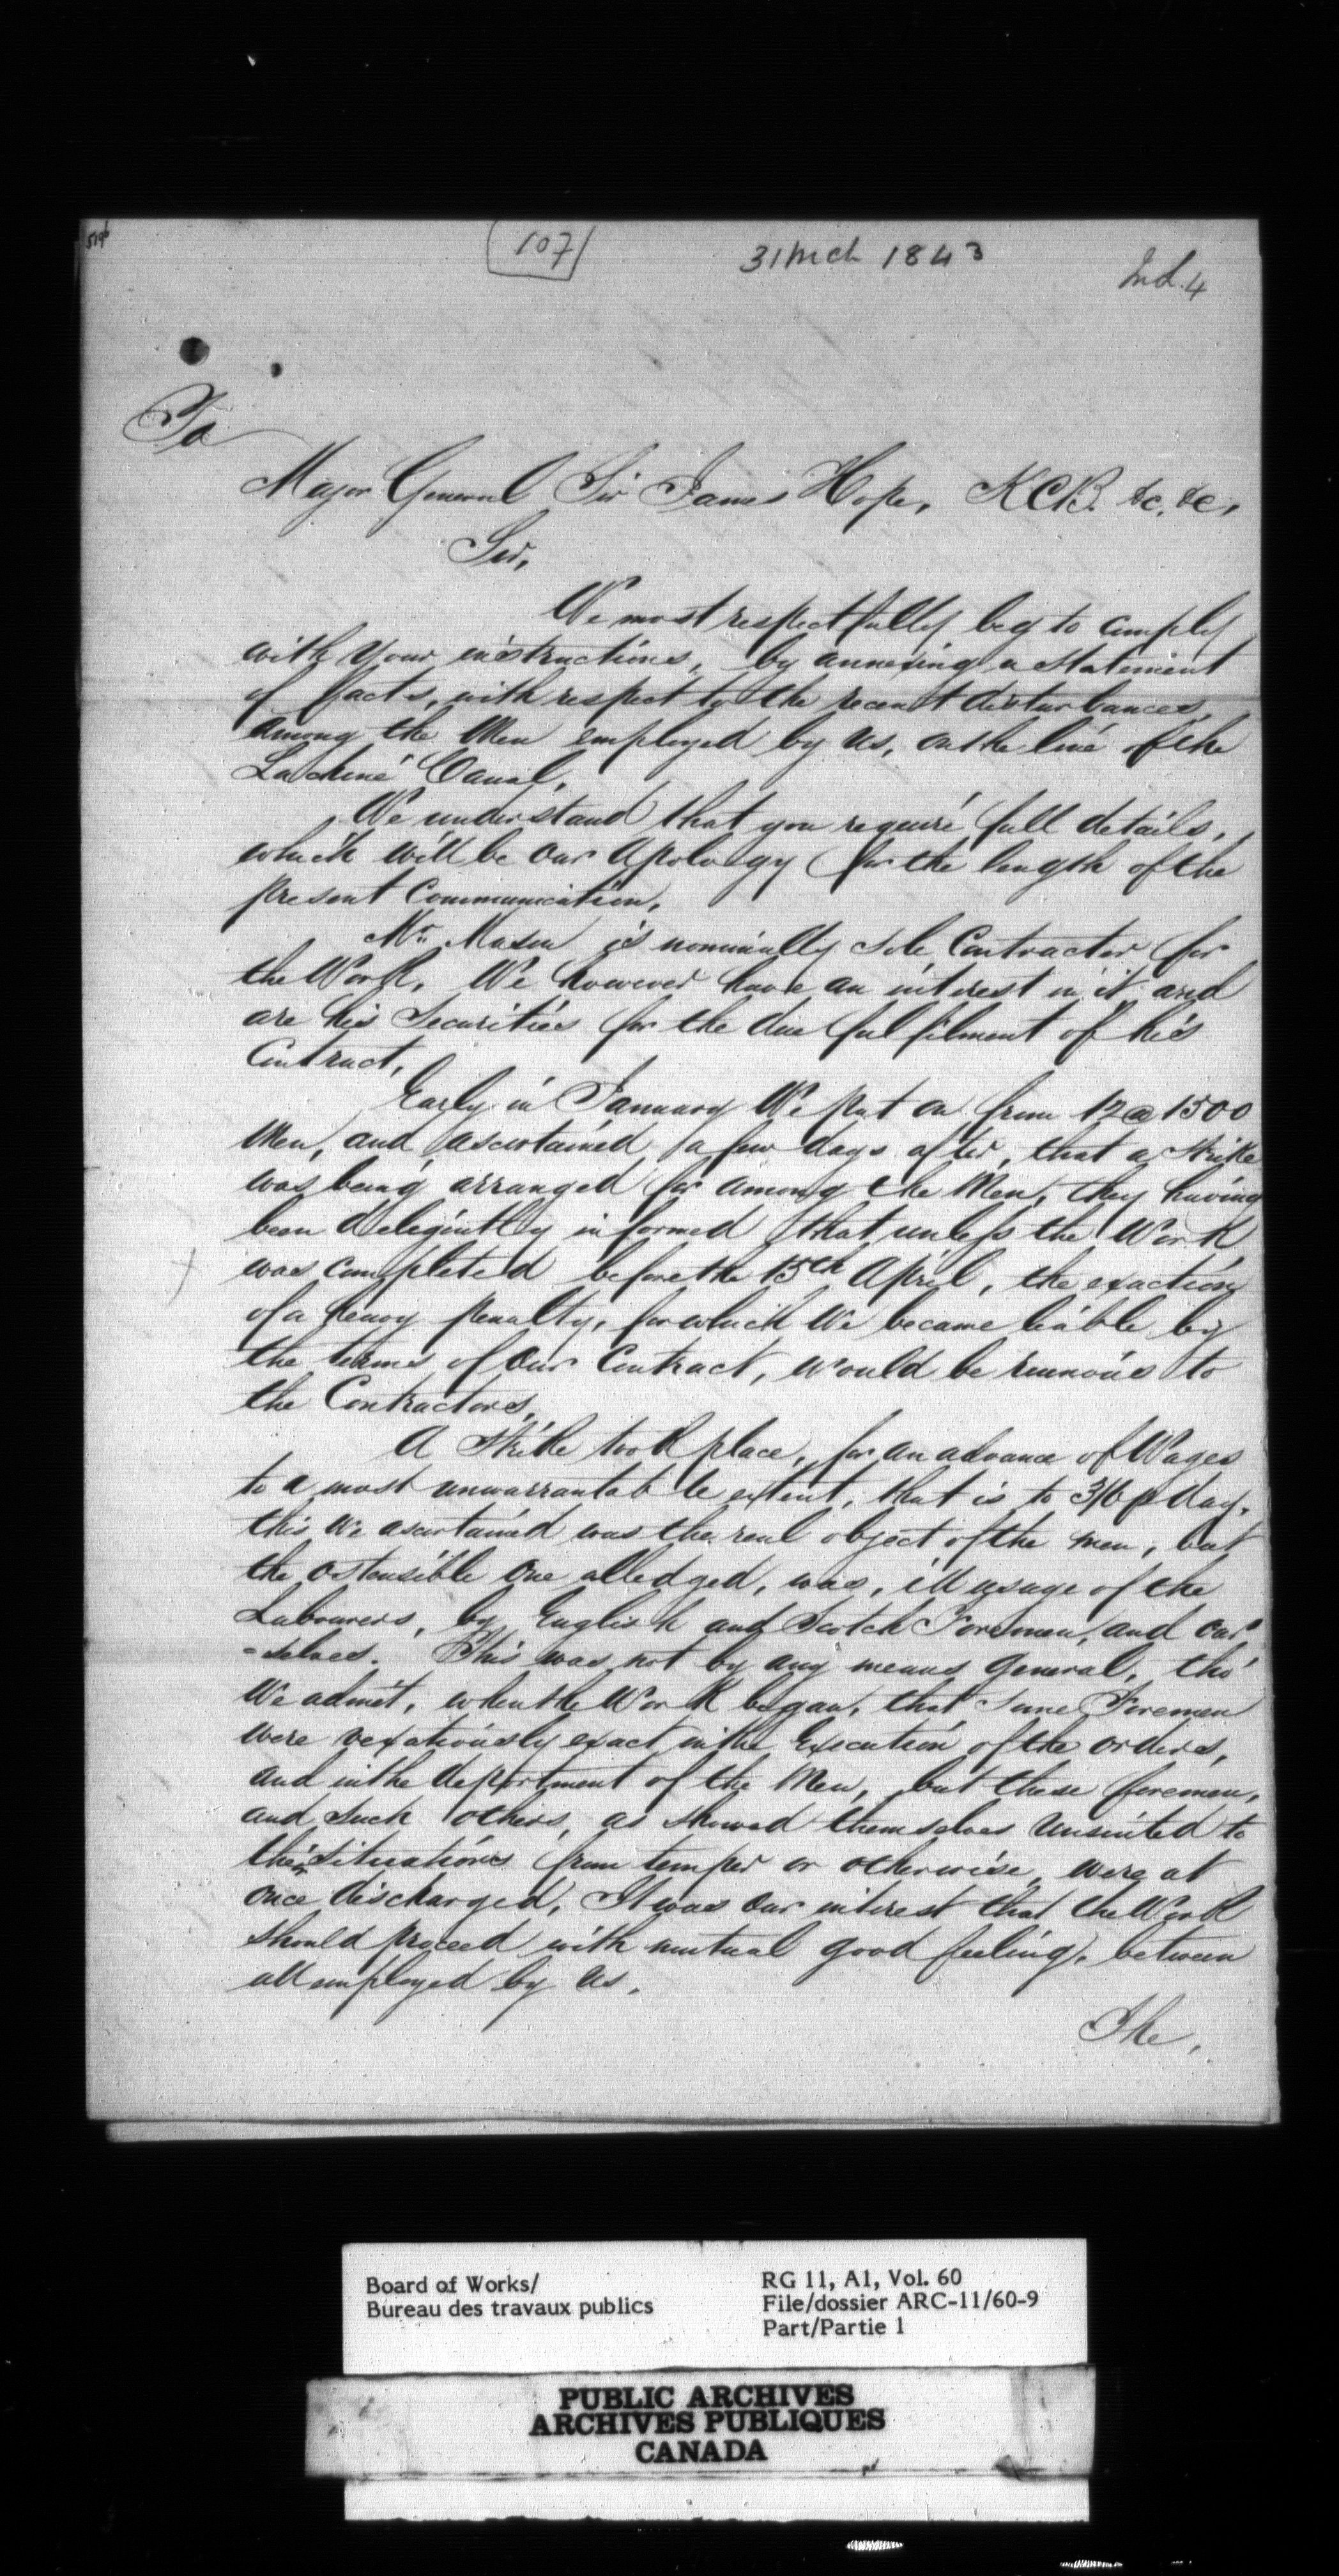 107
31 Mch 1843
Ind. 4
To
Major General Sir James Hope, KCB. &c, &c,
Sir,
We most respectfully beg to comply
with your instructions, by annexing a Statement
of facts, with respect to the recent disturbances,
among the Men employed by us, on the line of the
Lachine Canal,
We understand that you require full details,
which will be our apology for the length of the
present Communication,
Mr. Mason is nominally Sole Contractor for
the Work, We however have an interest in it and
are his Securities for the due fulfilment of his
Contract,
Early in January We put on from 12 @ 1500
Men, and ascertained a few days after, that a Strike
was being arranged for among the Men, they having
been delegintly informed that unless the Work
was completed before the 15th April, the exaction
of a heavy penalty, for which We became liable by
the terms of our Contract, would be ruinous to
the Contractors,
A Strike took place, for an advance of Wages
to a most unwarrantable extent, that is to 3/6 p day,
this We ascertained was the real object of the men, but
the ostensible one alledged, was, ill usage of the
Labourers, by English and Scotch Foremen, and our
=selves. This was not by any means general, tho'
We admit, when the Work began, that Some Foremen
were vexatiously exact in the Execution of the orders,
and in the deportment of the Men, but these foremen,
and such others, as showed themselves unsuited to
their situations from temper or otherwise, were at
once discharged, It was our interest that the Work
should proceed with mutual good feeling, between
all employed by us,
The,
Board of Works/
Bureau des travaux publics
RG 11, A1, Vol. 60
File/dossier ARC-11/60-9
Part/Partie 1
PUBLIC ARCHIVES
ARCHIVES PUBLIQUES
CANADA